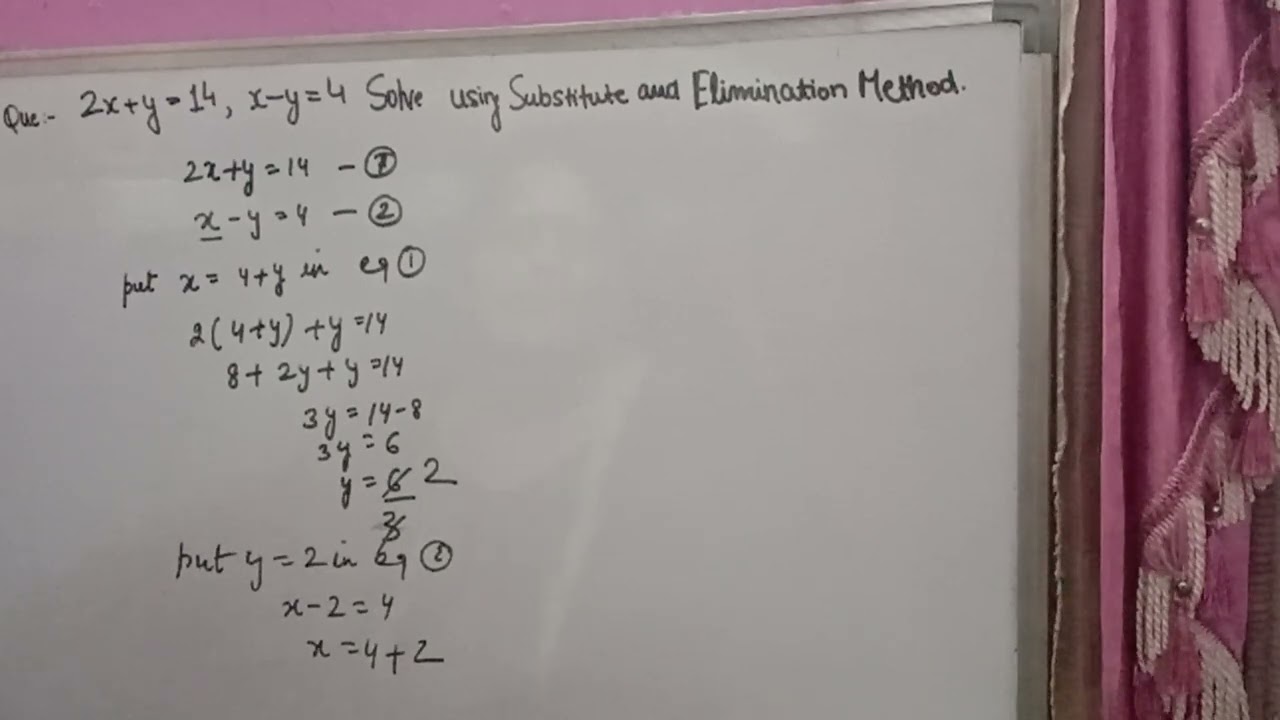 Que:- 2x+y=14, x-y=4 Solve using Substitute and Elimination Method.
2x+y=14 - ①
x-y=4 - ②
put x = 4+y in eq ①
2(4+y)+y=14
8+2y+y=14
3y=14-8
3y=6
y=6/3 2
put y=2 in eq ②
x-2=4
x=4+2